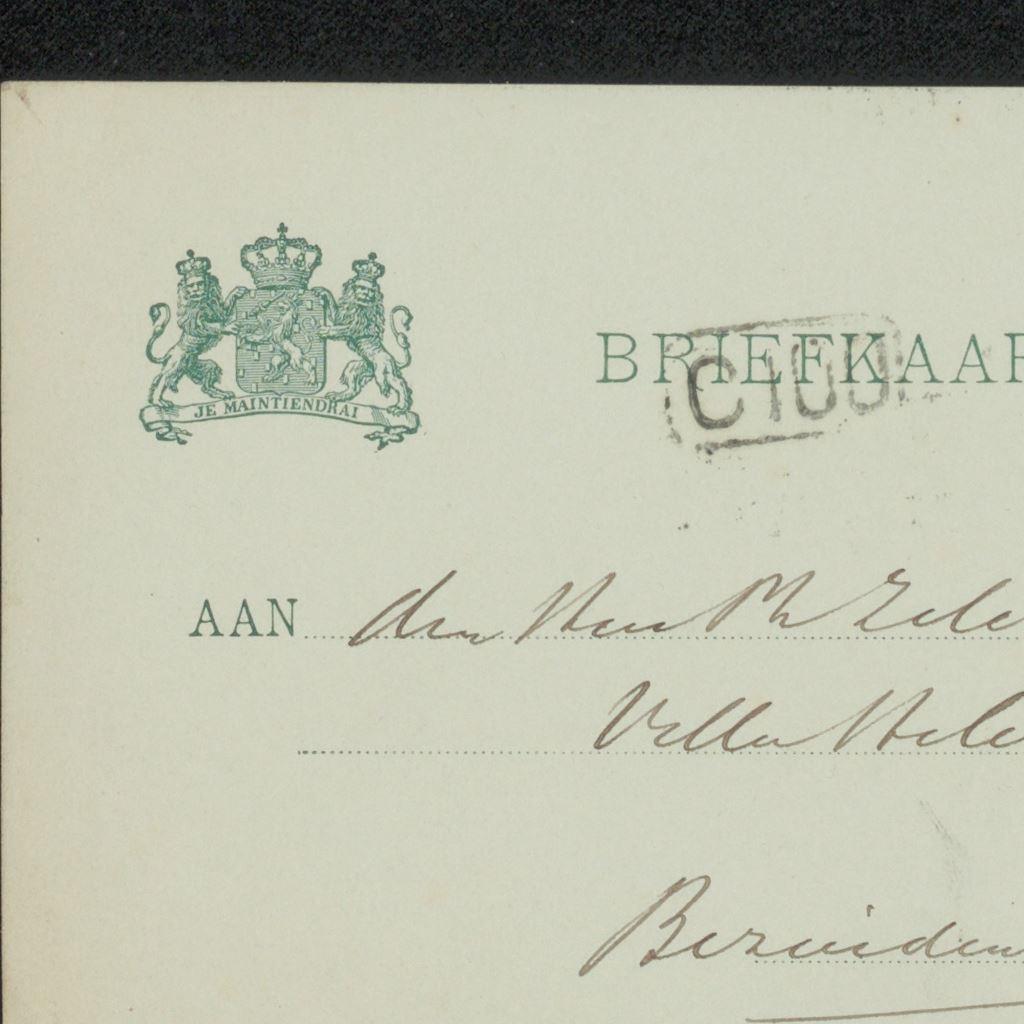 JE MAINTIENDRAI
BRIEFKAAR
C100
AAN den Heer Ph Zilc
Villa Hele
Bezuiden